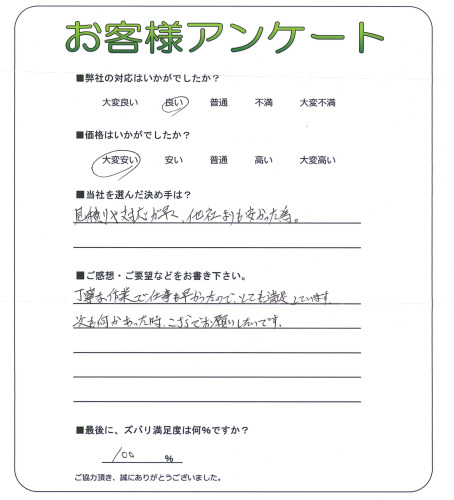 お客様アンケート
■弊社の対応はいかがでしたか？
大変良い 良い 普通 不満 大変不満
■価格はいかがでしたか？
大変安い 安い 普通 高い 大変高い
■当社を選んだ決め手は？
見積りや対応が早く、他社よりも安かった為。
■ご感想・ご要望などをお書き下さい。
丁寧な作業で仕事も早かったので、とても満足しています。
次も何かあった時、こちらでお願いしたいです。
■最後に、ズバリ満足度は何％ですか？
100 ％
ご協力頂き、誠にありがとうございました。